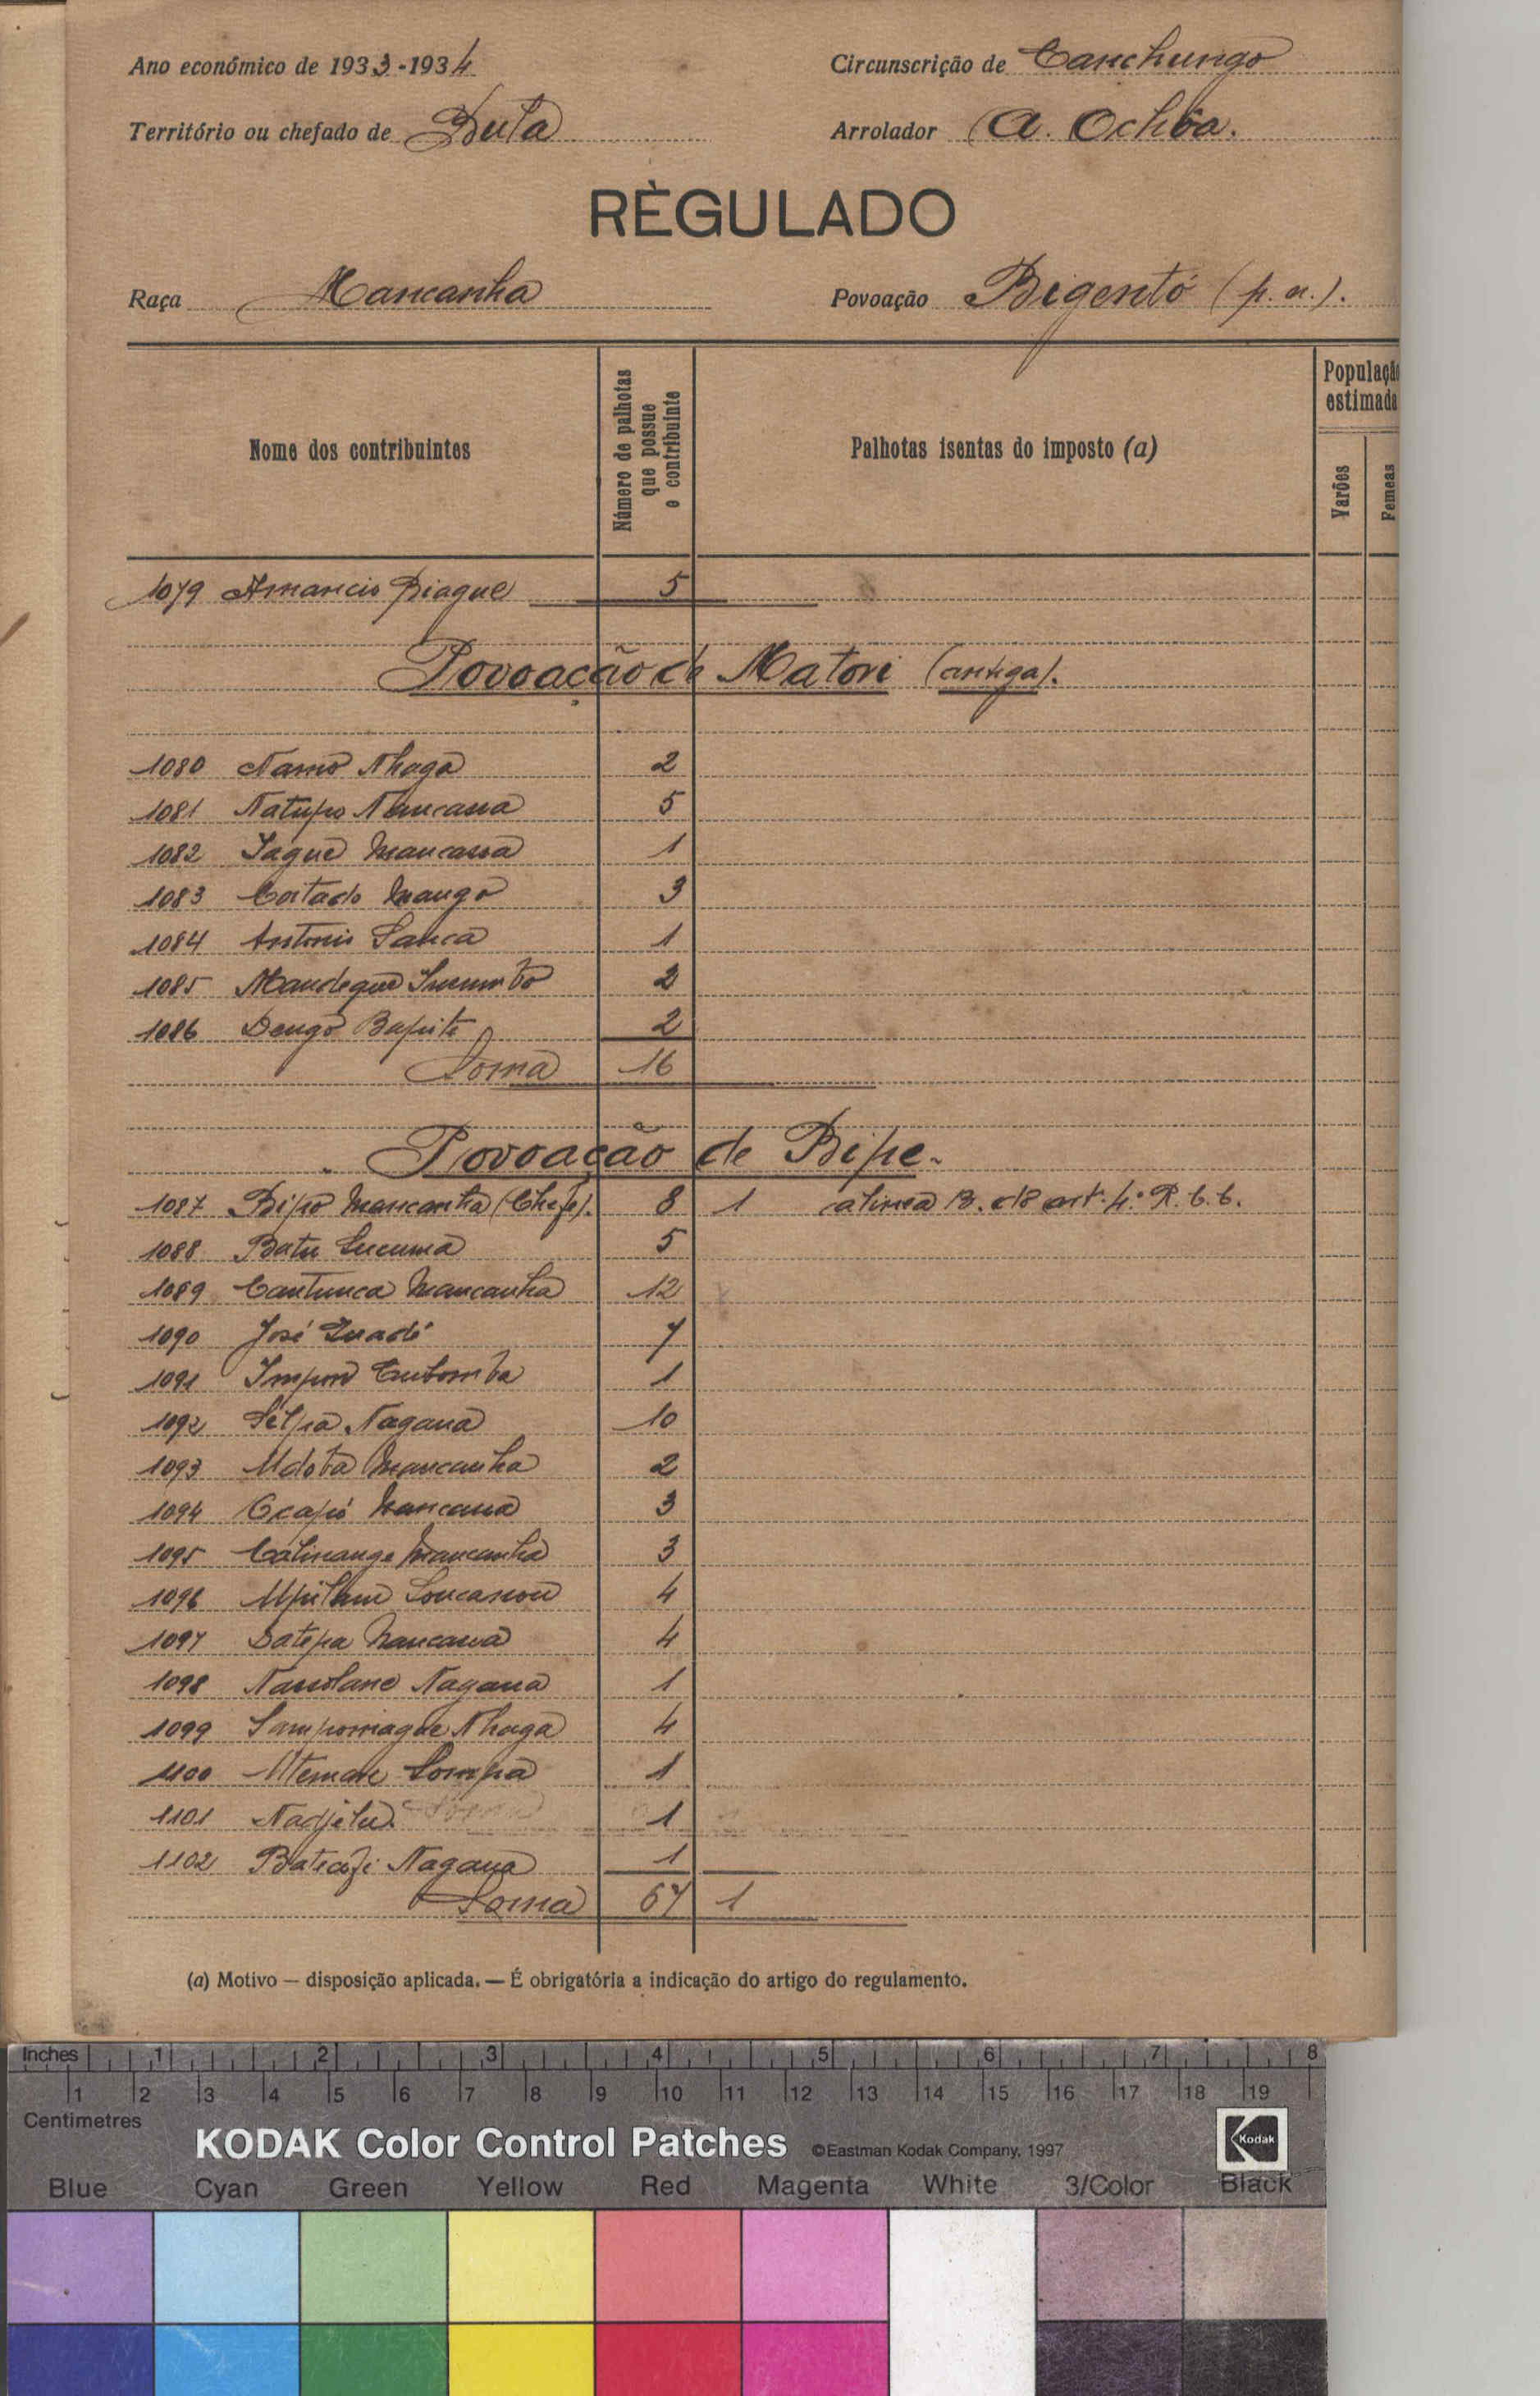 Ano económico de 1933-1934 Circunscrição de Canchungo
Território ou chefado de Bula Arrolador A. Ochôa.
RÈGULADO
Raça Mancanha Povoação Bigentó (p. n.).
Nome dos contribuintes
Número de palhotas que possue o contribuinte
Palhotas isentas do imposto (a)
População estimada
Varões
Femeas
1079 Amancio Biague 5
Povoação de Matori (antiga).
1080 Namô Nhaga 2
1081 Natupo Nancassa 5
1082 Iague Mancassa 1
1083 Cortado Mango 3
1084 Antonio Sanca 1
1085 Mandeque 2
1086 Dengo Bapite 2
Soma 16
Povoação de Bipe.
1087 Bipô Mancanha (Chefe). 8 1 alinea B. do art.º 4.º R. C. C.
1088 Batu Lucuma 5
1089 Cantunca Mancanha 12
1090 José Quadé 7
1091 1
1092 Nagana 10
1093 Udota Mancanha 2
1094 Ocapó Nancassa 3
1095 Mancanha 3
1096 4
1097 Datepa Nancassa 4
1098 Nagana 1
1099 Sampomague Nhaga 4
1100 Sompa 1
1101 Nadjilu 1
1102 Nagana 1
Soma 67 1
(a) Motivo — disposição aplicada. — É obrigatória a indicação do artigo do regulamento.
Inches 1 2 3 4 5 6 7 8
1 2 3 4 5 6 7 8 9 10 11 12 13 14 15 16 17 18 19
Centimetres
KODAK Color Control Patches ©Eastman Kodak Company, 1997 Kodak
Blue Cyan Green Yellow Red Magenta White 3/Color Black